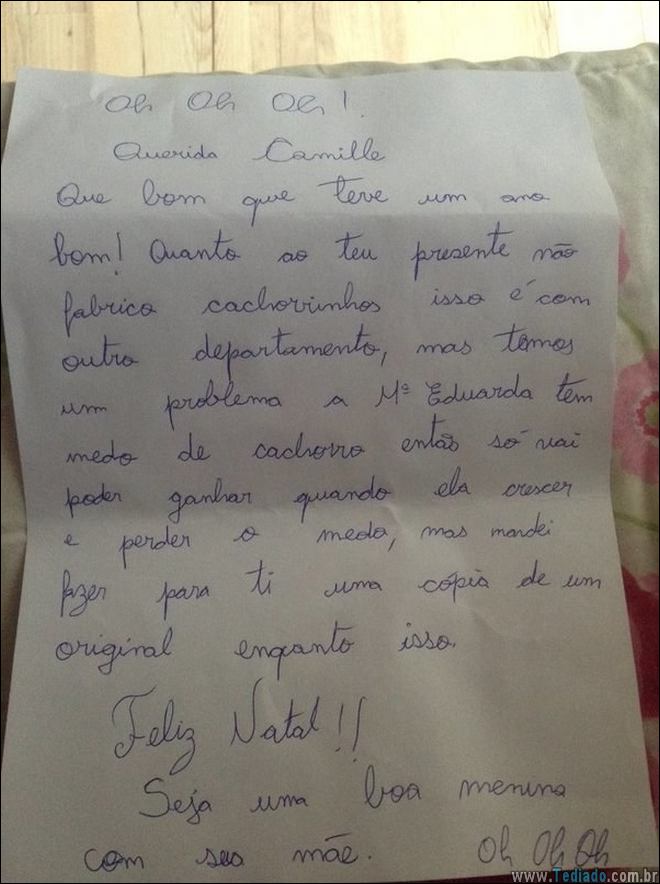 Oh Oh Oh!
Querida Camille
Que bom que teve um ano
bom! Quanto ao teu presente não
fabrico cachorrinhos isso é com
outro departamento, mas temos
um problema a Mª Eduarda tem
medo de cachorro então só vai
poder ganhar quando ela crescer
e perder o medo, mas mandei
fazer para ti uma cópia de um
original enqanto isso.
Feliz Natal!!
Seja uma boa menina
com sua mãe. Oh Oh Oh
www.Tediado.com.br